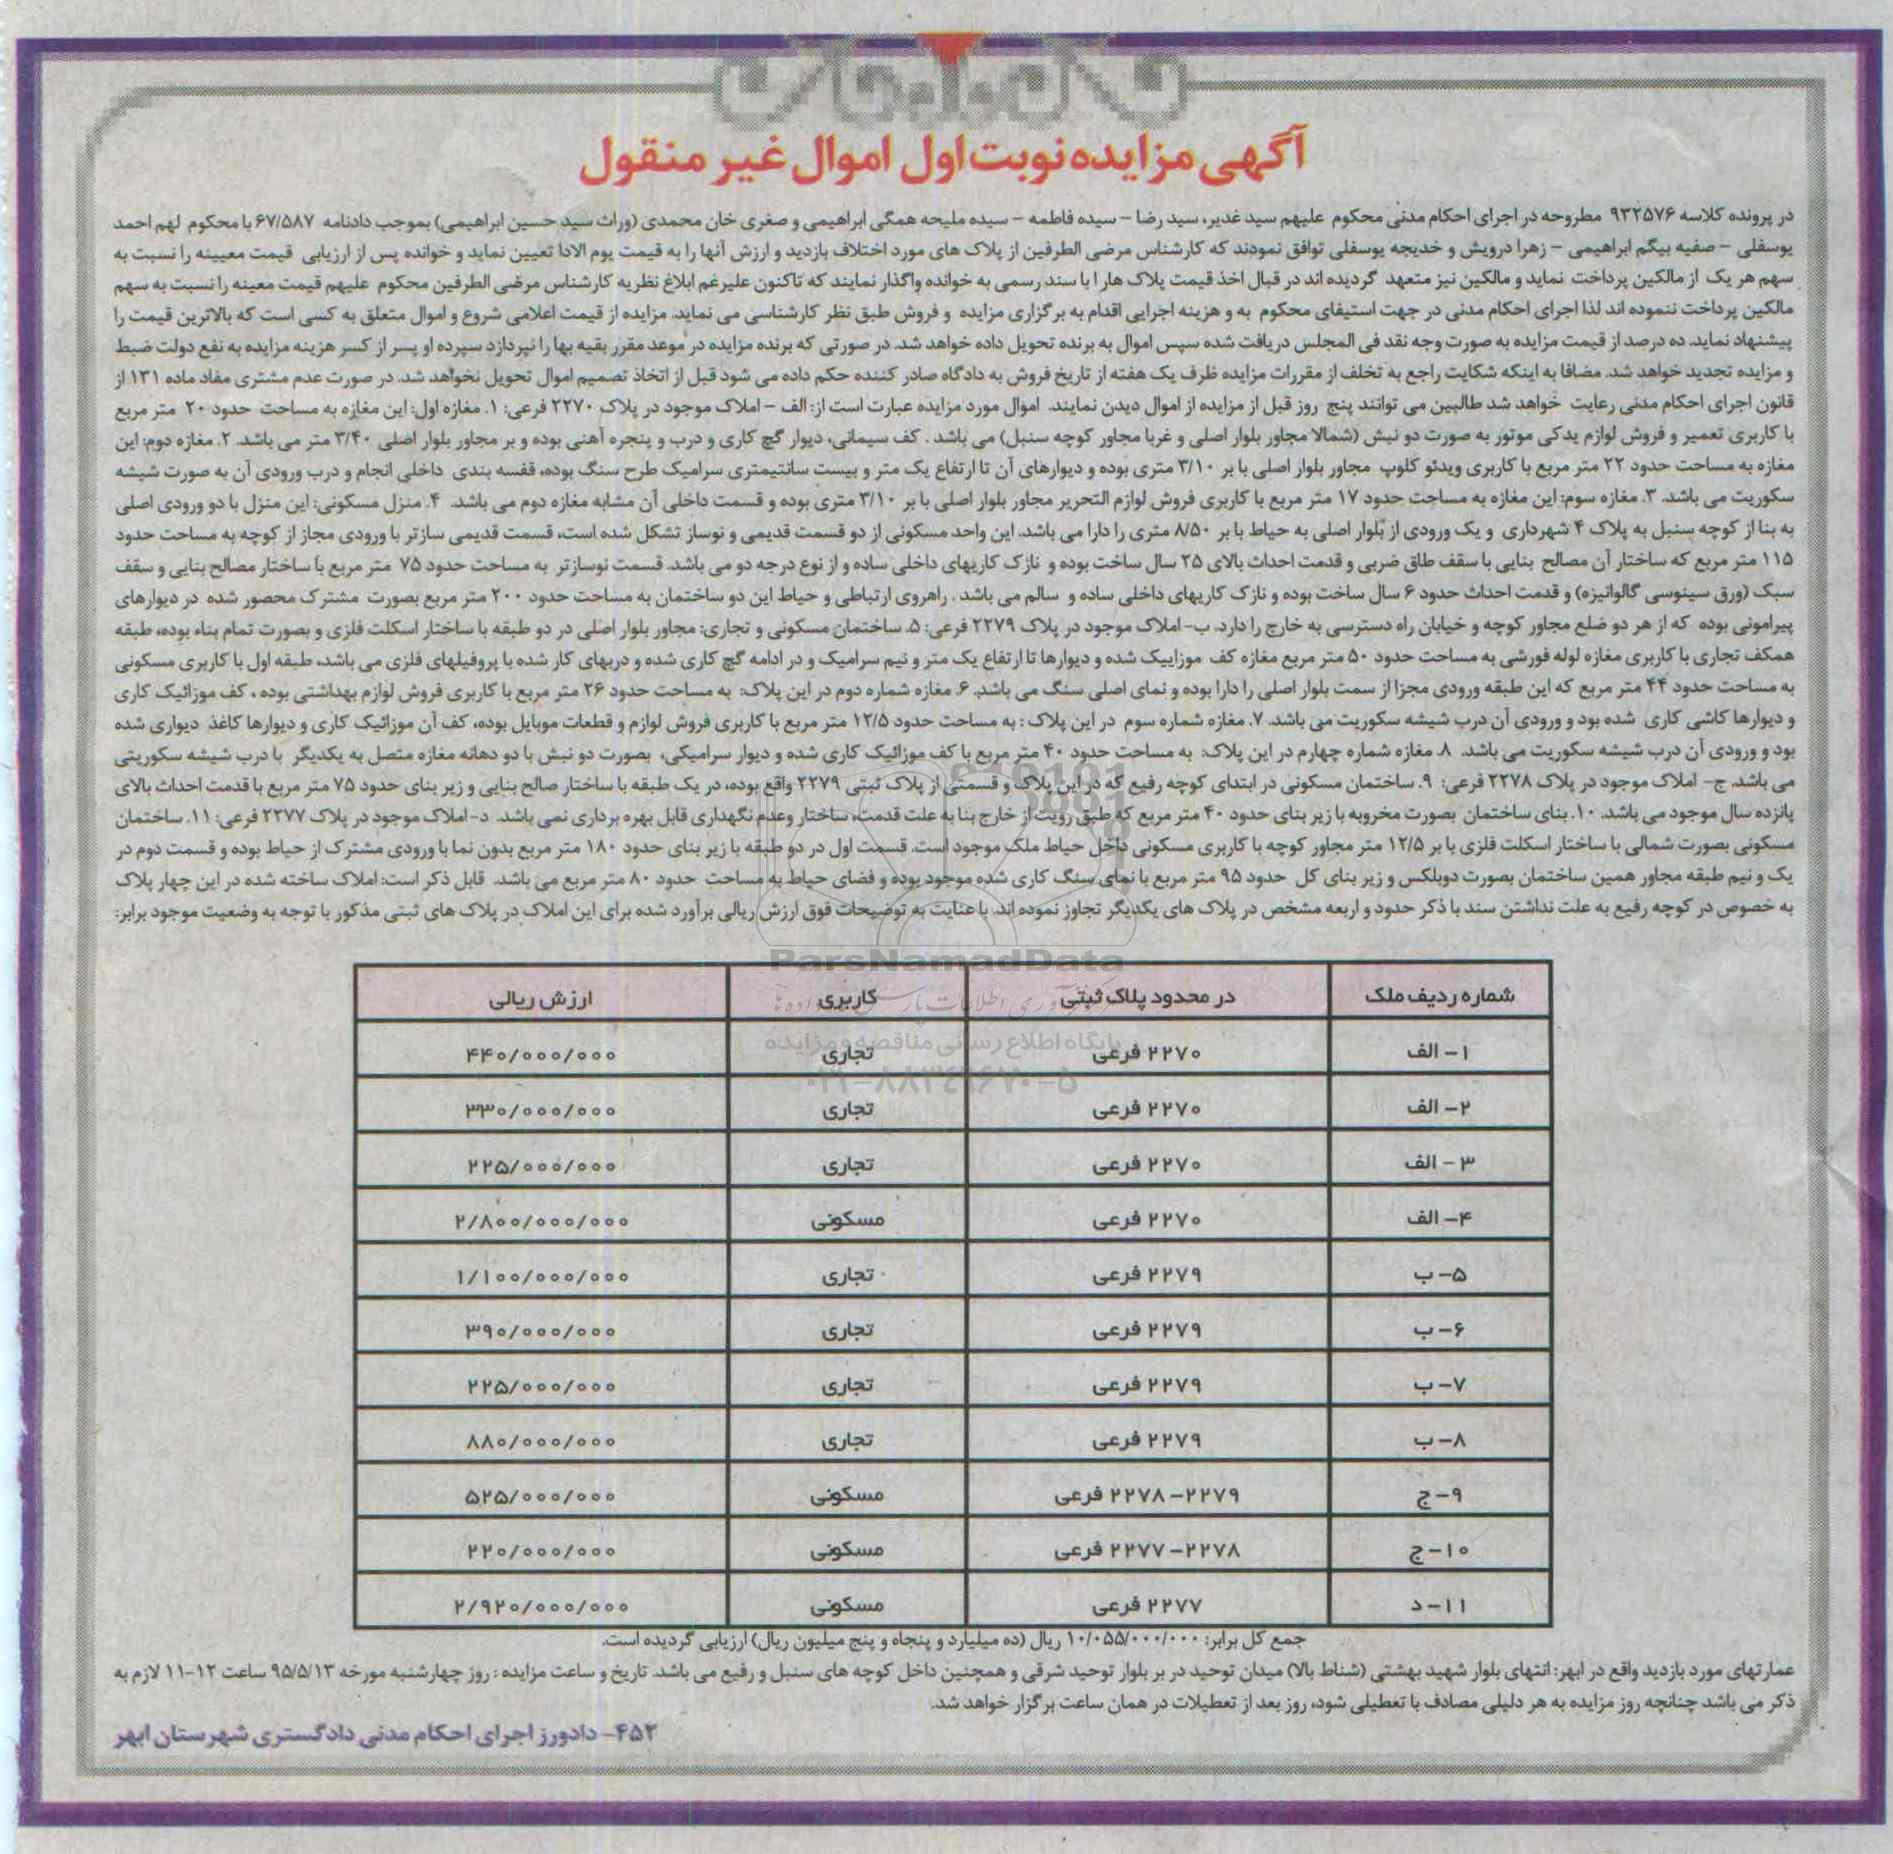 آگهی مزایده نوبت اول اموال غیر منقول
در پرونده کلاسه ۹۳۲۵۷۶ مطروحه در اجرای احکام مدنی محکوم علیهم سید غدیر، سید رضا – سیده فاطمه – سیده ملیحه همگی ابراهیمی و صغری خان محمدی (وراث سید حسین ابراهیمی) بموجب دادنامه ۶۷/۵۸۷ با محکوم لهم احمد
یوسفلی – صفیه بیگم ابراهیمی – زهرا درویش و خدیجه یوسفلی توافق نمودند که کارشناس مرضی الطرفین از پلاک های مورد اختلاف بازدید و ارزش آنها را به قیمت یوم الادا تعیین نماید و خوانده پس از ارزیابی قیمت معیینه را نسبت به
سهم هر یک از مالکین پرداخت نماید و مالکین نیز متعهد گردیده اند در قبال اخذ قیمت پلاک هار ا با سند رسمی به خوانده واگذار نمایند که تاکنون علیرغم ابلاغ نظریه کارشناس مرضی الطرفین محکوم علیهم قیمت معینه را نسبت به سهم
مالکین پرداخت ننموده اند لذا اجرای احکام مدنی در جهت استیفای محکوم به و هزینه اجرایی اقدام به برگزاری مزایده و فروش طبق نظر کارشناسی می نماید. مزایده از قیمت اعلامی شروع و اموال متعلق به کسی است که بالاترین قیمت را
پیشنهاد نماید. ده درصد از قیمت مزایده به صورت وجه نقد فی المجلس دریافت شده سپس اموال به برنده تحویل داده خواهد شد. در صورتی که برنده مزایده در موعد مقرر بقیه بها را نپردازد سپرده او پسر از کسر هزینه مزایده به نفع دولت ضبط
و مزایده تجدید خواهد شد. مضافا به اینکه شکایت راجع به تخلف از مقررات مزایده ظرف یک هفته از تاریخ فروش به دادگاه صادر کننده حکم داده می شود قبل از اتخاذ تصمیم اموال تحویل نخواهد شد. در صورت عدم مشتری مفاد ماده ۱۳۱ از
قانون اجرای احکام مدنی رعایت خواهد شد طالبین می توانند پنج روز قبل از مزایده از اموال دیدن نمایند. اموال مورد مزایده عبارت است از: الف – املاک موجود در پلاک ۲۲۷۰ فرعی: ۱. مغازه اول: این مغازه به مساحت حدود ۲۰ متر مربع
با کاربری تعمیر و فروش لوازم یدکی موتور به صورت دو نبش (شمالا مجاور بلوار اصلی و غربا مجاور کوچه سنبل) می باشد . کف سیمانی، دیوار گچ کاری و درب و پنجره آهنی بوده و بر مجاور بلوار اصلی ۳/۴۰ متر می باشد. ۲. مغازه دوم: این
مغازه به مساحت حدود ۲۲ متر مربع با کاربری ویدئو کلوپ مجاور بلوار اصلی با بر ۳/۱۰ متری بوده و دیوارهای آن تا ارتفاع یک متر و بیست سانتیمتری سرامیک طرح سنگ بوده، قفسه بندی داخلی انجام و درب ورودی آن به صورت شیشه
سکوریت می باشد. ۳. مغازه سوم: این مغازه به مساحت حدود ۱۷ متر مربع با کاربری فروش لوازم التحریر مجاور بلوار اصلی با بر ۳/۱۰ متری بوده و قسمت داخلی آن مشابه مغازه دوم می باشد. ۴. منزل مسکونی: این منزل با دو ورودی اصلی
به بنا از کوچه سنبل به پلاک ۴ شهرداری و یک ورودی از بلوار اصلی به حیاط با بر ۸/۵۰ متری را دارا می باشد. این واحد مسکونی از دو قسمت قدیمی و نوساز تشکل شده است، قسمت قدیمی سازتر با ورودی مجاز از کوچه به مساحت حدود
۱۱۵ متر مربع که ساختار آن مصالح بنایی با سقف طاق ضربی و قدمت احداث بالای ۲۵ سال ساخت بوده و نازک کاریهای داخلی ساده و از نوع درجه دو می باشد. قسمت نوسازتر به مساحت حدود ۷۵ متر مربع با ساختار مصالح بنایی و سقف
سبک (ورق سینوسی گالوانیزه) و قدمت احداث حدود ۶ سال ساخت بوده و نازک کاریهای داخلی ساده و سالم می باشد . راهروی ارتباطی و حیاط این دو ساختمان به مساحت حدود ۲۰۰ متر مربع بصورت مشترک محصور شده در دیوارهای
پیرامونی بوده که از هر دو ضلع مجاور کوچه و خیابان راه دسترسی به خارج را دارد. ب- املاک موجود در پلاک ۲۲۷۹ فرعی: ۵. ساختمان مسکونی و تجاری: مجاور بلوار اصلی در دو طبقه با ساختار اسکلت فلزی و بصورت تمام بناء بوده، طبقه
همکف تجاری با کاربری مغازه لوله فورشی به مساحت حدود ۵۰ متر مربع مغازه کف موزاییک شده و دیوارها تا ارتفاع یک متر و نیم سرامیک و در ادامه گچ کاری شده و دربهای کار شده با پروفیلهای فلزی می باشد، طبقه اول با کاربری مسکونی
به مساحت حدود ۴۴ متر مربع که این طبقه ورودی مجزا از سمت بلوار اصلی را دارا بوده و نمای اصلی سنگ می باشد. ۶. مغازه شماره دوم در این پلاک: به مساحت حدود ۲۶ متر مربع با کاربری فروش لوازم بهداشتی بوده ، کف موزائیک کاری
و دیوارها کاشی کاری شده بود و ورودی آن درب شیشه سکوریت می باشد. ۷. مغازه شماره سوم در این پلاک : به مساحت حدود ۱۲/۵ متر مربع با کاربری فروش لوازم و قطعات موبایل بوده، کف آن موزائیک کاری و دیوارها کاغذ دیواری شده
بود و ورودی آن درب شیشه سکوریت می باشد. ۸. مغازه شماره چهارم در این پلاک: به مساحت حدود ۴۰ متر مربع با کف موزائیک کاری شده و دیوار سرامیکی، بصورت دو نبش با دو دهانه مغازه متصل به یکدیگر با درب شیشه سکوریتی
می باشد. ج- املاک موجود در پلاک ۲۲۷۸ فرعی: ۹. ساختمان مسکونی در ابتدای کوچه رفیع که در این پلاک و قسمتی از پلاک ثبتی ۲۲۷۹ واقع بوده، در یک طبقه با ساختار صالح بنایی و زیر بنای حدود ۷۵ متر مربع با قدمت احداث بالای
پانزده سال موجود می باشد. ۱۰. بنای ساختمان بصورت مخروبه با زیر بنای حدود ۴۰ متر مربع که طبق رویت از خارج بنا به علت قدمت، ساختار و عدم نگهداری قابل بهره برداری نمی باشد. د- املاک موجود در پلاک ۲۲۷۷ فرعی: ۱۱. ساختمان
مسکونی بصورت شمالی با ساختار اسکلت فلزی با بر ۱۲/۵ متر مجاور کوچه با کاربری مسکونی داخل حیاط ملک موجود است. قسمت اول در دو طبقه با زیر بنای حدود ۱۸۰ متر مربع بدون نما با ورودی مشترک از حیاط بوده و قسمت دوم در
یک و نیم طبقه مجاور همین ساختمان بصورت دوبلکس و زیر بنای کل حدود ۹۵ متر مربع با نمای سنگ کاری شده موجود بوده و فضای حیاط به مساحت حدود ۸۰ متر مربع می باشد. قابل ذکر است: املاک ساخته شده در این چهار پلاک
به خصوص در کوچه رفیع به علت نداشتن سند با ذکر حدود و اربعه مشخص در پلاک های یکدیگر تجاوز نموده اند. با عنایت به توضیحات فوق ارزش ریالی برآورد شده برای این املاک در پلاک های ثبتی مذکور با توجه به وضعیت موجود برابر:
ParsNamadData
شماره ردیف ملک در محدود پلاک ثبتی کاربری ارزش ریالی
پایگاه اطلاع رسانی مناقصه و مزایده
۱- الف ۲۲۷۰ فرعی تجاری ۴۴۰/۰۰۰/۰۰۰
۰۲۱-۸۸۳۴۹۶۷۰-۵
۲- الف ۲۲۷۰ فرعی تجاری ۳۳۰/۰۰۰/۰۰۰
۳- الف ۲۲۷۰ فرعی تجاری ۲۲۵/۰۰۰/۰۰۰
۴- الف ۲۲۷۰ فرعی مسکونی ۲/۸۰۰/۰۰۰/۰۰۰
۵- ب ۲۲۷۹ فرعی تجاری ۱/۱۰۰/۰۰۰/۰۰۰
۶- ب ۲۲۷۹ فرعی تجاری ۳۹۰/۰۰۰/۰۰۰
۷- ب ۲۲۷۹ فرعی تجاری ۲۲۵/۰۰۰/۰۰۰
۸- ب ۲۲۷۹ فرعی تجاری ۸۸۰/۰۰۰/۰۰۰
۹- ج ۲۲۷۹-۲۲۷۸ فرعی مسکونی ۵۲۵/۰۰۰/۰۰۰
۱۰- ج ۲۲۷۸-۲۲۷۷ فرعی مسکونی ۲۲۰/۰۰۰/۰۰۰
۱۱- د ۲۲۷۷ فرعی مسکونی ۲/۹۲۰/۰۰۰/۰۰۰
جمع کل برابر: ۱۰/۰۵۵/۰۰۰/۰۰۰ ریال (ده میلیارد و پنجاه و پنج میلیون ریال) ارزیابی گردیده است.
عمارتهای مورد بازدید واقع در ابهر: انتهای بلوار شهید بهشتی (شناط بالا) میدان توحید در بر بلوار توحید شرقی و همچنین داخل کوچه های سنبل و رفیع می باشد. تاریخ و ساعت مزایده : روز چهارشنبه مورخه ۹۵/۵/۱۳ ساعت ۱۲-۱۱ لازم به
ذکر می باشد چنانچه روز مزایده به هر دلیلی مصادف با تعطیلی شود، روز بعد از تعطیلات در همان ساعت برگزار خواهد شد.
۴۵۲- دادورز اجرای احکام مدنی دادگستری شهرستان ابهر